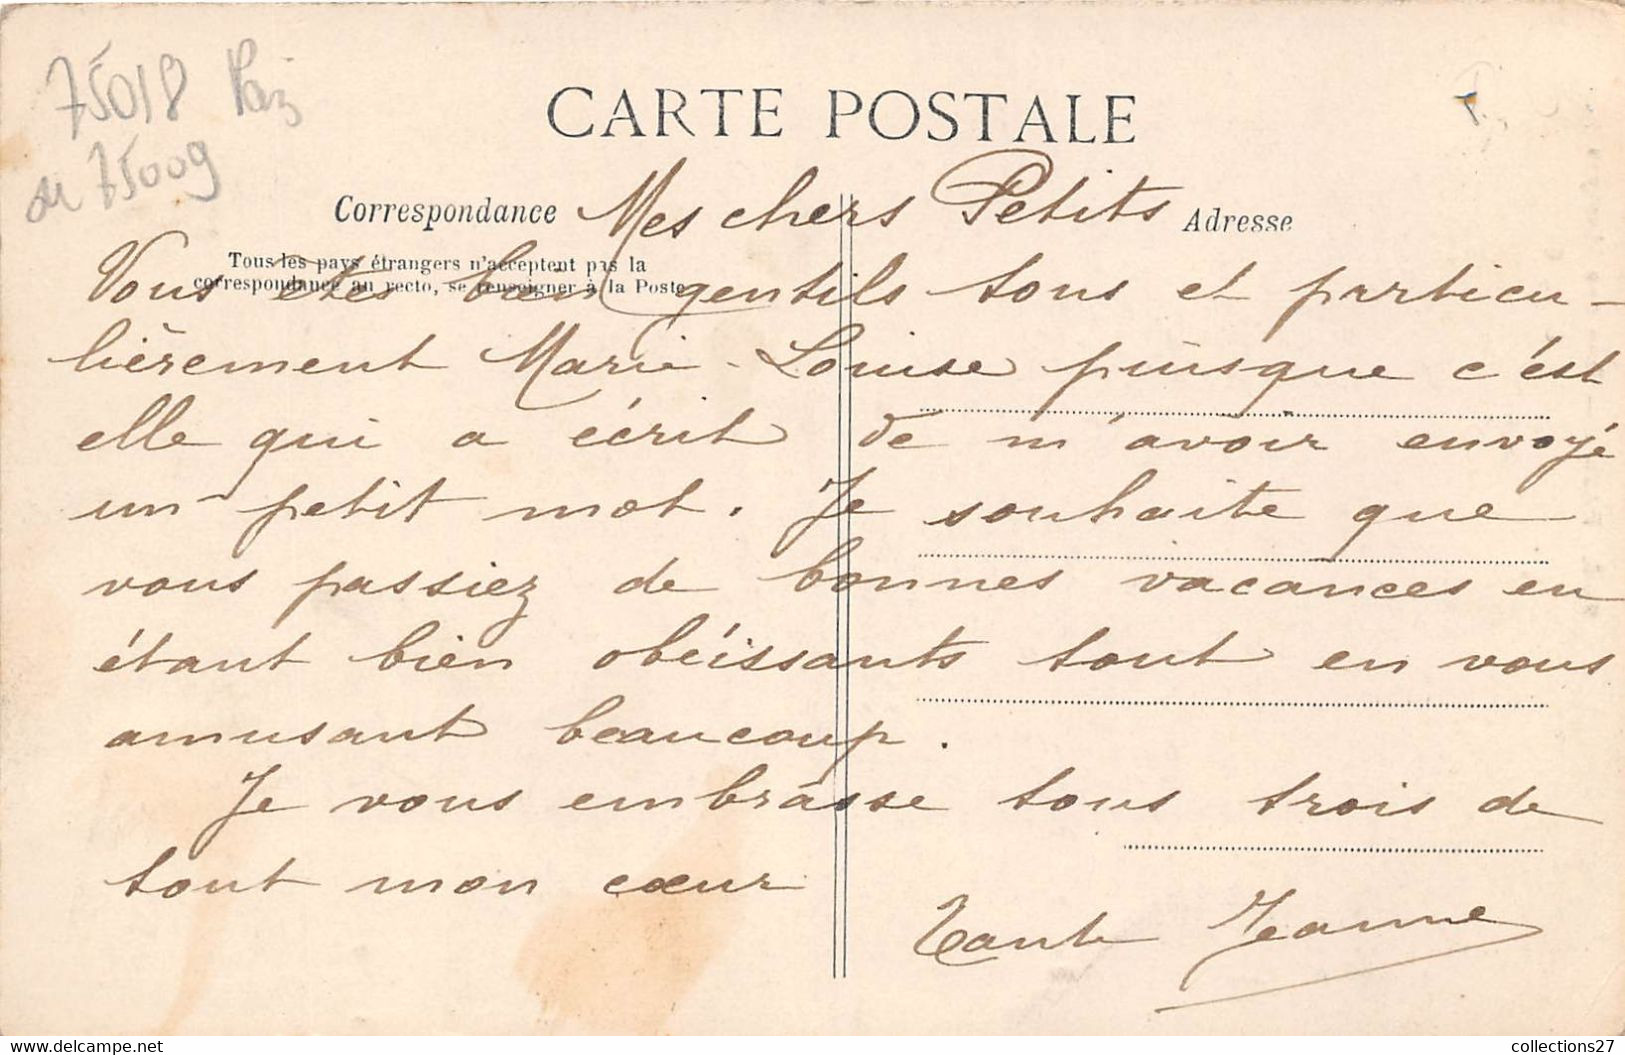 75018 Paris
ou 75009
CARTE POSTALE
Correspondance
Adresse
Tous les pays étrangers n'acceptent pas la
correspondance au recto, se renseigner à la Poste
Mes chers Petits
Vous êtes bien gentils tous et particu-
lièrement Marie-Louise puisque c'est
elle qui a écrit de m'avoir envoyé
un petit mot. Je souhaite que
vous passiez de bonnes vacances en
étant bien obéissants tout en vous
amusant beaucoup.
Je vous embrasse tous trois de
tout mon cœur
Tante Jeanne
collections27